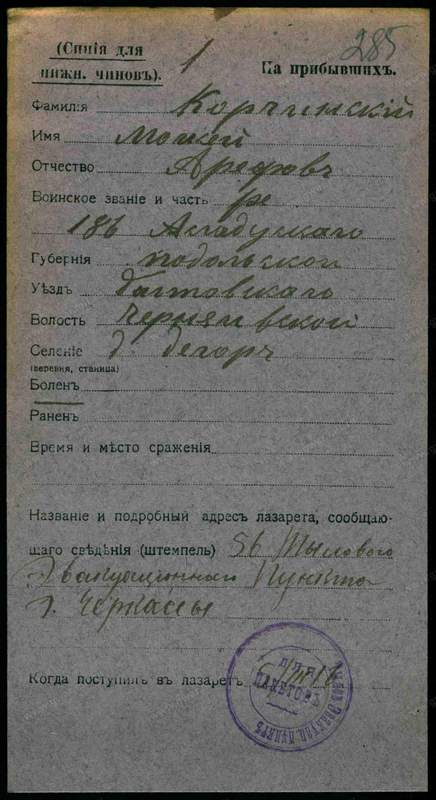 285
(Синія для
нижн. чиновъ).
1
На прибывшихъ.
Фамилія Корчинскій
Имя Мокей
Отчество Арефовъ
Воинское званіе и часть ря
186 Асландузскаго
Губернія подольской
Уѣздъ балтовскаго
Волость
Селеніе д.
(деревня, станица)
Боленъ
Раненъ
Время и мѣсто сраженія
Названіе и подробный адресъ лазарета, сообщаю-
щаго свѣдѣнія (штемпель) 56 Тылового
Эвакуаціоннаго Пункта
г. Черкассы
Когда поступилъ въ лазаретъ
ДЛЯ
ПАКЕТОВЪ